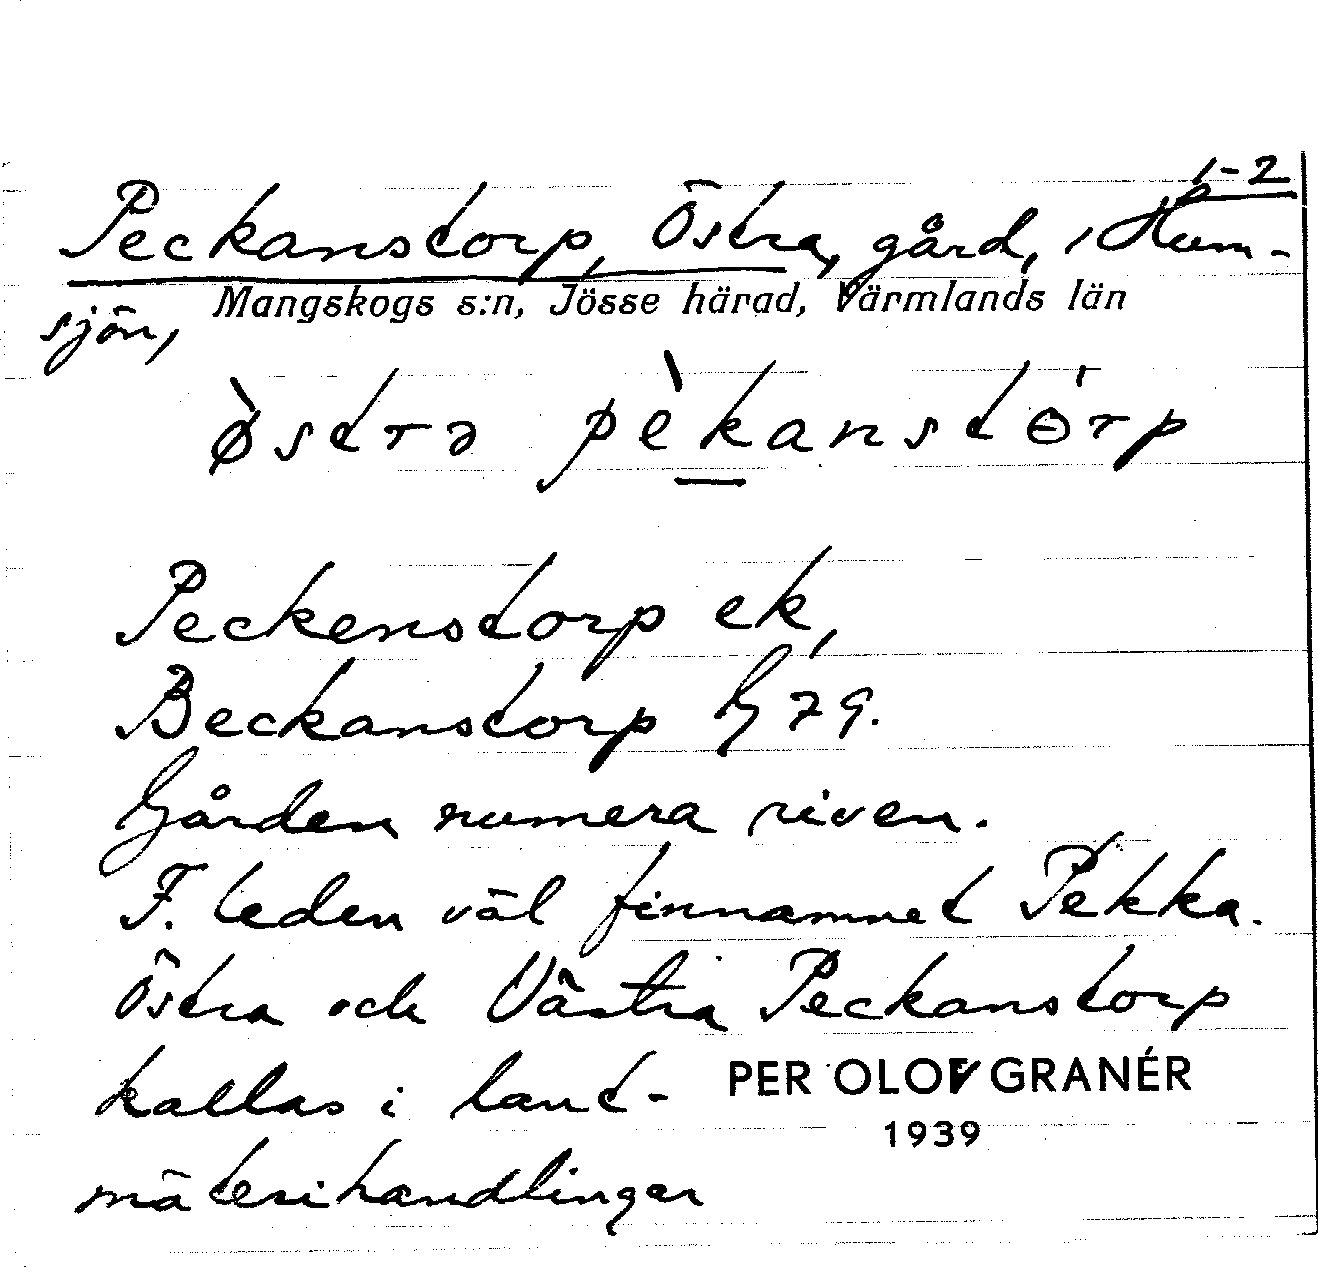 1-2
Peckanstorp, Östra, gård, i Hum-
Mangskogs s:n, Jösse härad, Värmlands län
sjön,
ø̀strə pèkanstɵ́rp
Peckenstorp ek,
Beckanstorp G 79.
Gården numera riven.
F. leden väl finnamnet Pekka.
Östra och Västra Peckanstorp
kallas i lant-
mäterihandlingar
PER OLOF GRANÉR
1939